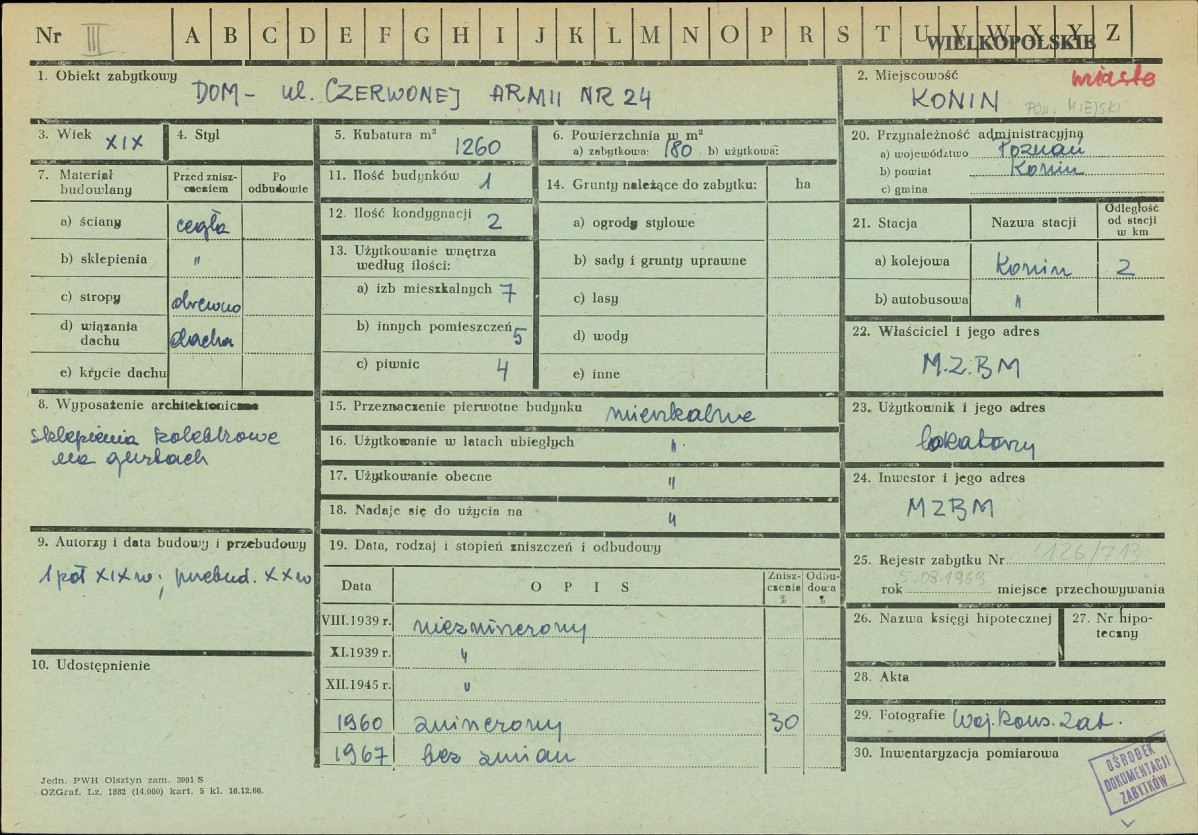 Nr III A B C D E F G H I J K L M N O P R S T U V W X Y Z
WIELKOPOLSKIE
1. Obiekt zabytkowy
DOM - ul. CZERWONEJ ARMII NR 24
2. Miejscowość
miasto
KONIN
POW. MIEJSKI
3. Wiek XIX
4. Styl
5. Kubatura m³ 1260
6. Powierzchnia w m²
a) zabytkowa: 180 b) użytkowa:
7. Materiał budowlany
Przed zniszczeniem
Po odbudowie
a) ściany cegła
b) sklepienia "
c) stropy drewno
d) wiązania dachu dachu
e) krycie dachu
8. Wyposażenie architektoniczne
sklepienia kolebkowe
na gurtach
9. Autorzy i data budowy i przebudowy
1 poł XIX w; przebud. XX w
10. Udostępnienie
11. Ilość budynków 1
12. Ilość kondygnacji 2
13. Użytkowanie wnętrza
według ilości:
a) izb mieszkalnych 7
b) innych pomieszczeń 5
c) piwnic 4
14. Grunty należące do zabytku: ha
a) ogrody stylowe
b) sady i grunty uprawne
c) lasy
d) wody
e) inne
15. Przeznaczenie pierwotne budynku mieszkalne
16. Użytkowanie w latach ubiegłych "
17. Użytkowanie obecne "
18. Nadaje się do użycia na "
19. Data, rodzaj i stopień zniszczeń i odbudowy
Data OPIS Zniszczenia % Odbudowa %
VIII.1939 r. niezniszczony
XI.1939 r. "
XII.1945 r. "
1960 zniszczony 30
1967 bez zmian
20. Przynależność administracyjna
a) województwo Poznań
b) powiat Konin
c) gmina
21. Stacja Nazwa stacji Odległość od stacji w km
a) kolejowa Konin 2
b) autobusowa "
22. Właściciel i jego adres
M.Z.BM
23. Użytkownik i jego adres
lokatorzy
24. Inwestor i jego adres
MZBM
25. Rejestr zabytku Nr 126/713
rok 5.08.1969 miejsce przechowywania
26. Nazwa księgi hipotecznej
27. Nr hipoteczny
28. Akta
29. Fotografie Woj. Kons. Zab.
30. Inwentaryzacja pomiarowa
OŚRODEK
DOKUMENTACJI
ZABYTKÓW
Jedn. PWH Olsztyn zam. 3991 S
OZGraf. Lz. 1882 (14.000) kart. 5 kl. 16.12.66.